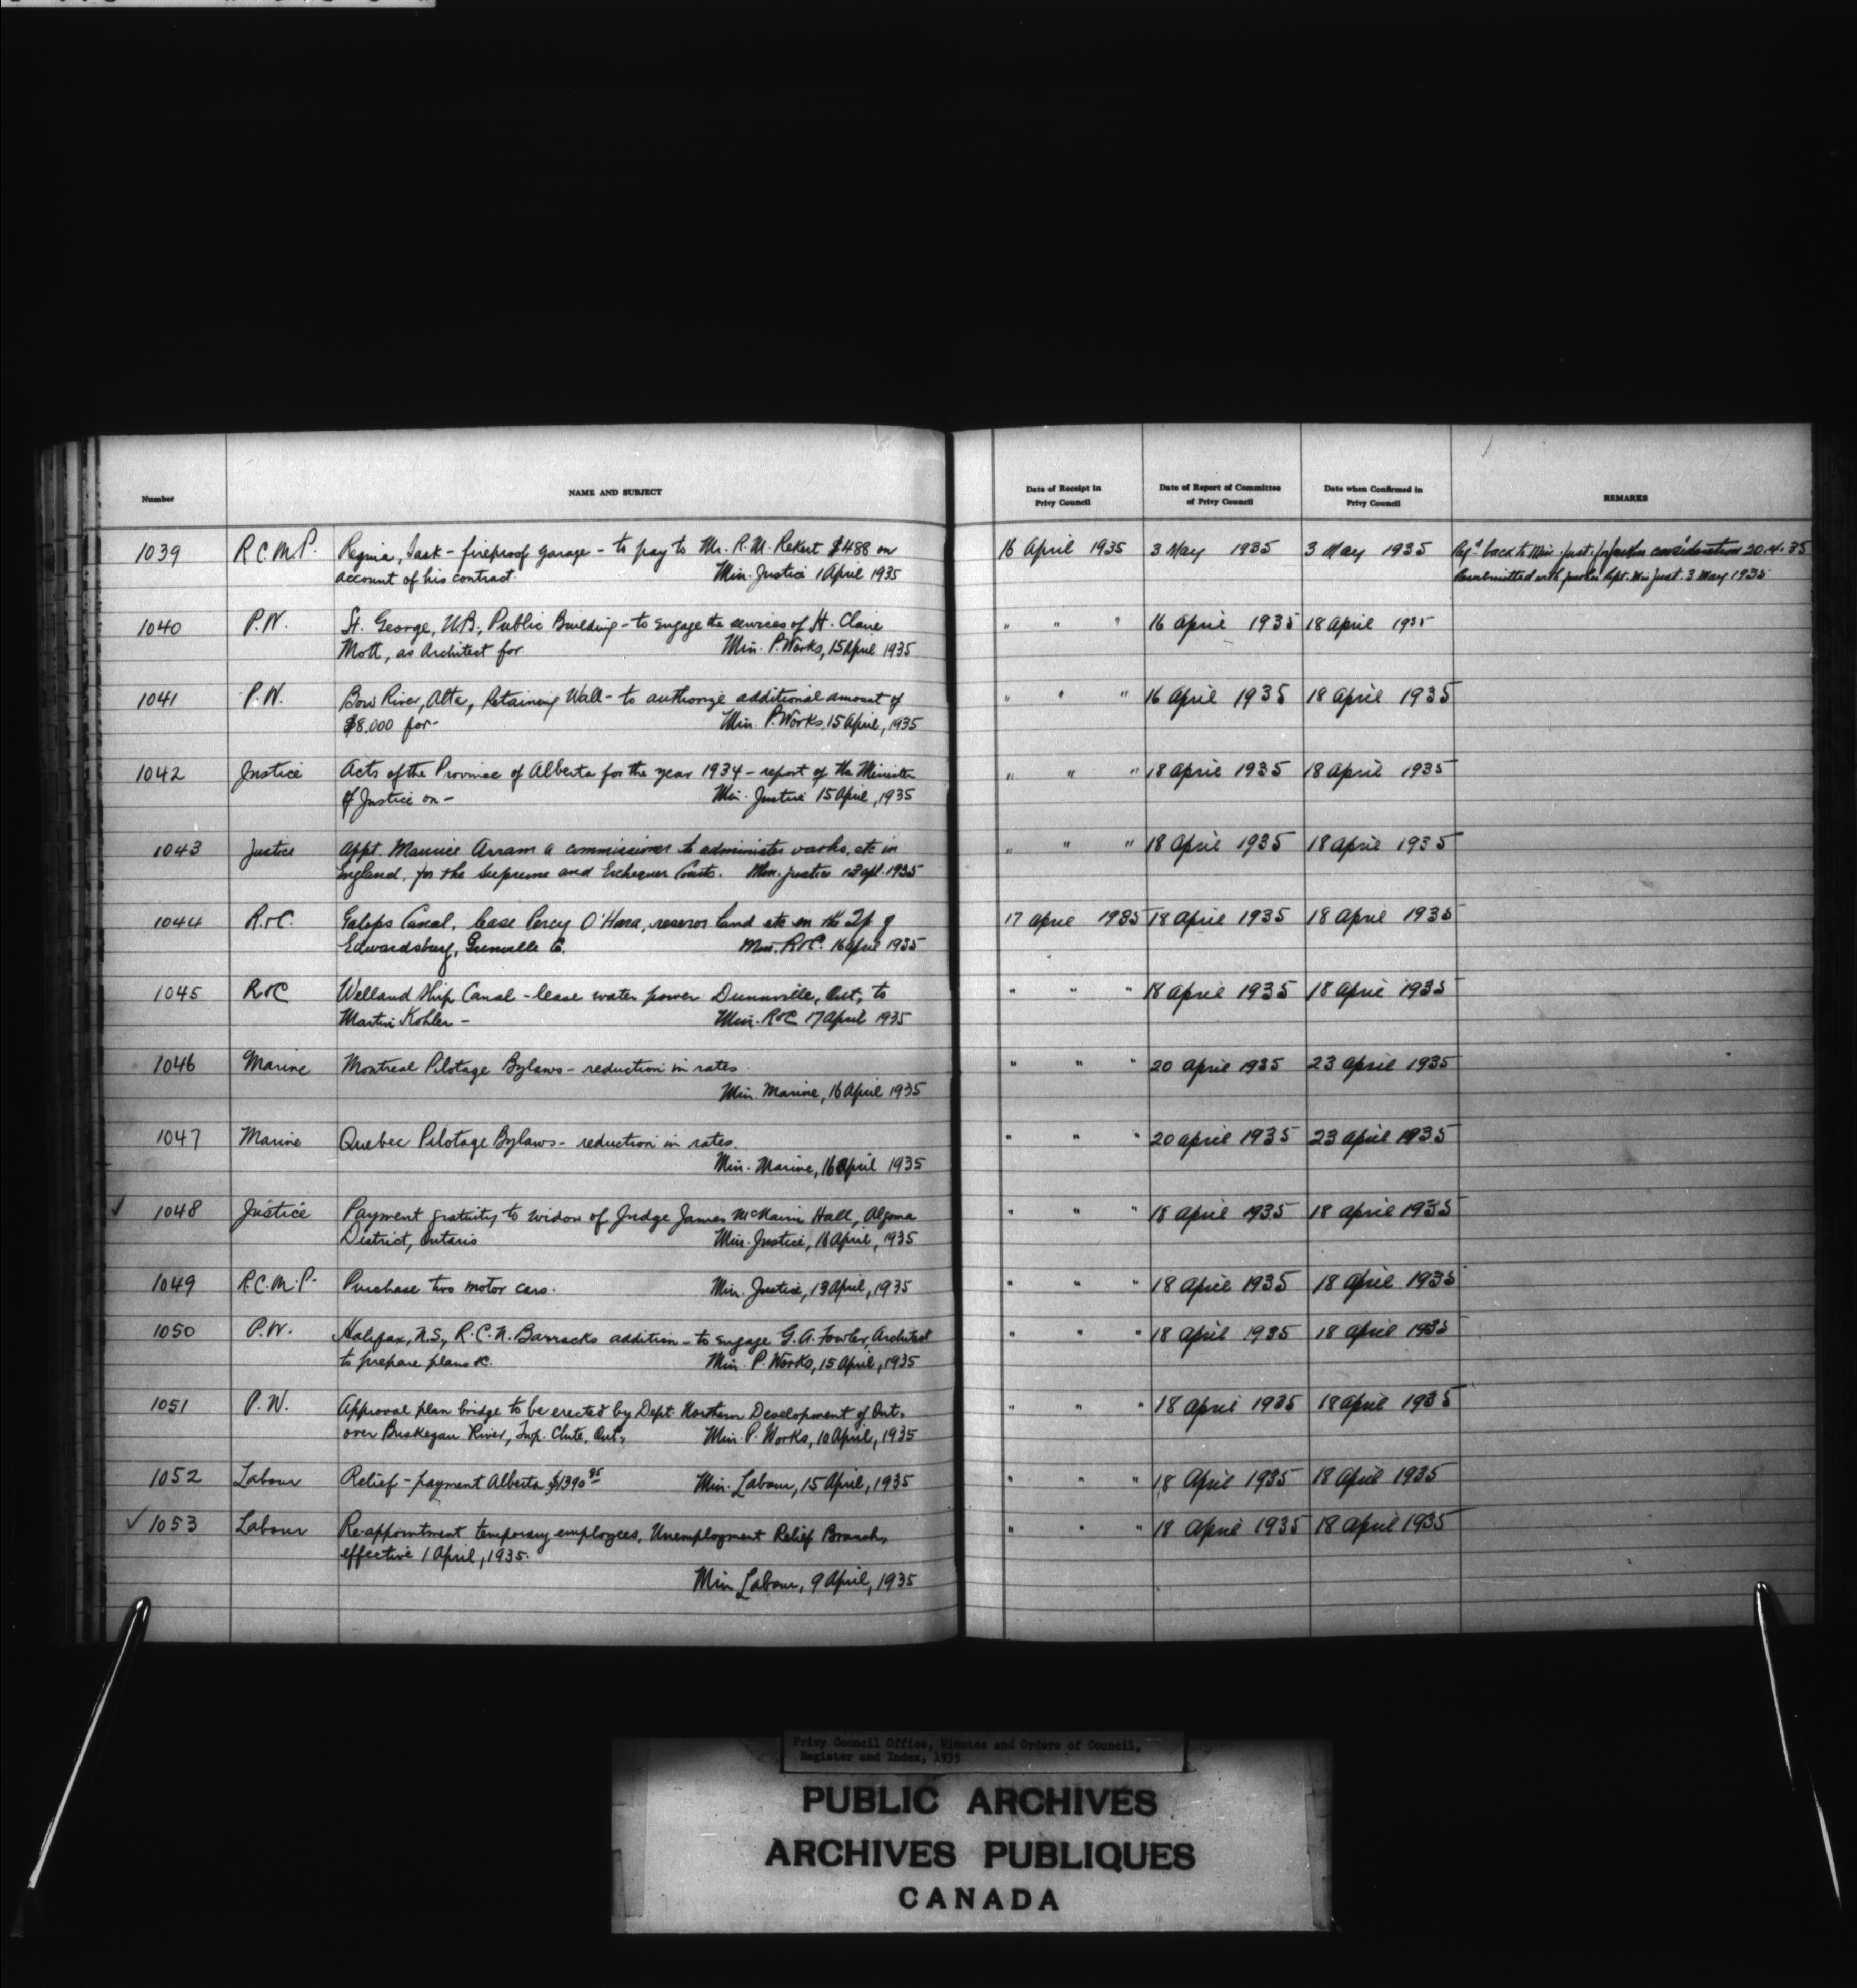 Number NAME AND SUBJECT Date of Receipt in Privy Council Date of Report of Committee of Privy Council Date when Confirmed in Privy Council REMARKS
1039 R.C.M.P. Regina, Sask - fireproof garage - to pay to Mr. R.M. $488 on 16 April 1935 3 May 1935 3 May 1935 Ref'd back to Min. Just. for further consideration 20.4.35
account of his contract. Min. Justice 1 April 1935 Resubmitted with further Rept. Min Just. 3 May 1935
1040 P.W. St. George, N.B., Public Building - to engage the services of H. Claire " " " 16 April 1935 18 April 1935
Mott, as Architect for Min. P. Works, 15 April 1935
1041 P.W. Bow River, Alta, Retaining Wall - to authorize additional amount of " " " 16 April 1935 18 April 1935
$8,000 for - Min. P. Works, 15 April, 1935
1042 Justice Acts of the Province of Alberta for the year 1934 - report of the Minister " " " 18 April 1935 18 April 1935
of Justice on - Min. Justice 15 April, 1935
1043 Justice Appt. Maurice Arram a commissioner to administer oaths, etc in " " " 18 April 1935 18 April 1935
England, for the Supreme and Exchequer Courts. Min. Justice 13 Apl. 1935
1044 R.&C. Galops Canal, lease Percy O'Hara, reserve land etc on the Tp of 17 April 1935 18 April 1935 18 April 1935
Edwardsburg, Grenville C. Min. R&C. 16 April 1935
1045 R&C Welland Ship Canal - lease water power Dunnville, Ont, to " " " 18 April 1935 18 April 1935
Martin Kohler - Min. R&C 17 April 1935
1046 Marine Montreal Pilotage Bylaws - reduction in rates. " " " 20 April 1935 23 April 1935
Min. Marine, 16 April 1935
1047 Marine Quebec Pilotage Bylaws - reduction in rates. " " " 20 April 1935 23 April 1935
Min. Marine, 16 April 1935
✓ 1048 Justice Payment gratuity to widow of Judge James Hall, Algoma " " " 18 April 1935 18 April 1935
District, Ontario Min. Justice, 16 April, 1935
1049 R.C.M.P. Purchase two motor cars. Min. Justice, 13 April, 1935 " " " 18 April 1935 18 April 1935
1050 P.W. Halifax, N.S., R.C.N. Barracks addition - to engage G.A. Fowler, Architect " " " 18 April 1935 18 April 1935
to prepare plans &c. Min. P. Works, 15 April, 1935
1051 P.W. Approval plan bridge to be erected by Dept. Northern Development of Ont. " " " 18 April 1935 18 April 1935
over Buskegau River, Twp. Clute, Ont., Min. P. Works, 10 April, 1935
1052 Labour Relief - payment Alberta $1390.95 Min. Labour, 15 April, 1935 " " " 18 April 1935 18 April 1935
✓ 1053 Labour Re-appointment temporary employees, Unemployment Relief Branch, " " " 18 April 1935 18 April 1935
effective 1 April, 1935.
Min Labour, 9 April, 1935
Privy Council Office, Minutes and Orders of Council,
Register and Index, 1935
PUBLIC ARCHIVES
ARCHIVES PUBLIQUES
CANADA